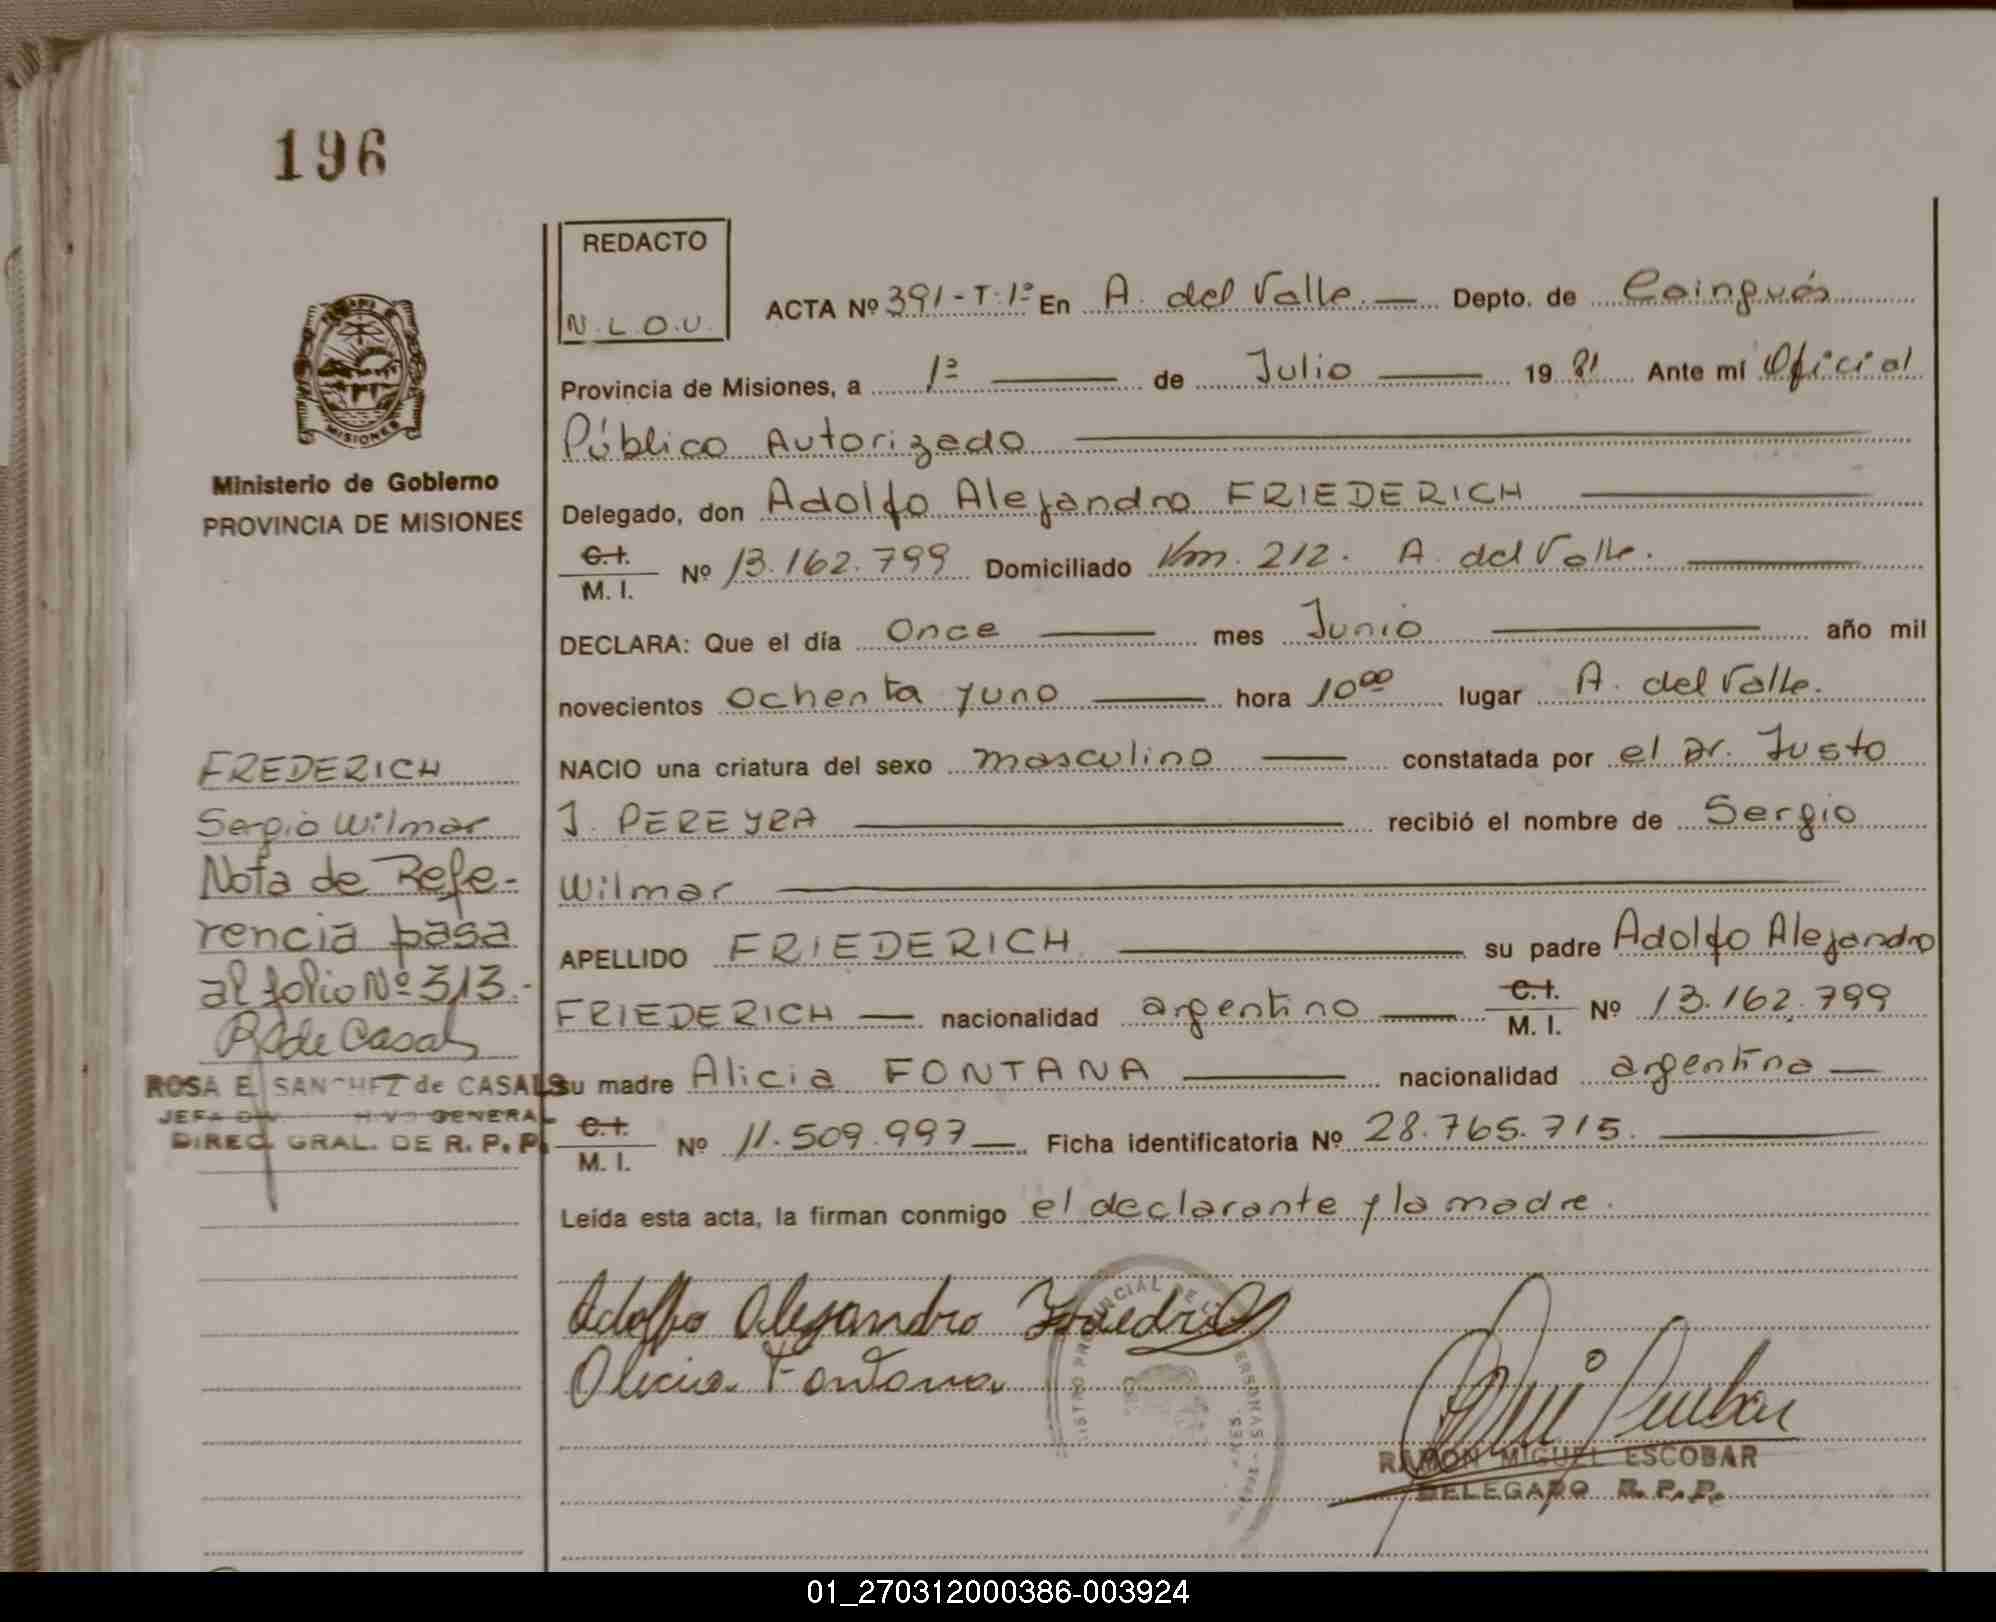 196
REDACTO
N.L.O.U.
ACTA Nº 391-T:1º En A. del Valle. Depto. de Cainguás
Provincia de Misiones, a 1º de Julio 1981 Ante mí Oficial
Público Autorizado
Delegado, don Adolfo Alejandro FRIEDERICH
C.I.
M. I. Nº 13.162.799 Domiciliado Km. 212. A. del Valle.
DECLARA: Que el día Once mes Junio año mil
novecientos ochenta y uno hora 10⁰⁰ lugar A. del Valle.
NACIO una criatura del sexo masculino constatada por el Dr. Justo
J. PEREYRA recibió el nombre de Sergio
Wilmar
APELLIDO FRIEDERICH su padre Adolfo Alejandro
FRIEDERICH nacionalidad argentino C.I. M. I. Nº 13.162.799
su madre Alicia FONTANA nacionalidad argentina
C.I.
M. I. Nº 11.509.997 Ficha identificatoria Nº 28.765.715.
Leída esta acta, la firman conmigo el declarante y la madre.
Adolfo Alejandro
Alicia Fontana
RAMON MIGUEL ESCOBAR
DELEGADO R.P.P.
MISIONES
Ministerio de Gobierno
PROVINCIA DE MISIONES
FREDERICH
Sergio Wilmar
Nota de Refe-
rencia pasa
al folio Nº 313.-
R de Casals
ROSA E SANCHEZ de CASALS
JEFA GENERAL
DIREC. GRAL. DE R. P. P.
01_270312000386-003924